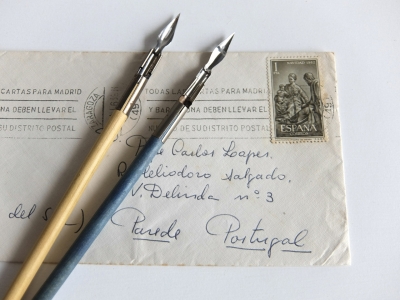 CARTAS PARA MADRID
TODAS LAS CARTAS PARA MADRID
NA DEBEN LLEVAR EL
Y BAR NA DEBEN LLEVAR EL
SU DISTRITO POSTAL
NO DE SU DISTRITO POSTAL
1
ESPAÑA
Carlos Loapes.
Heliodoro Salgado,
V. Delinda nº 3
del S
Parede Portugal